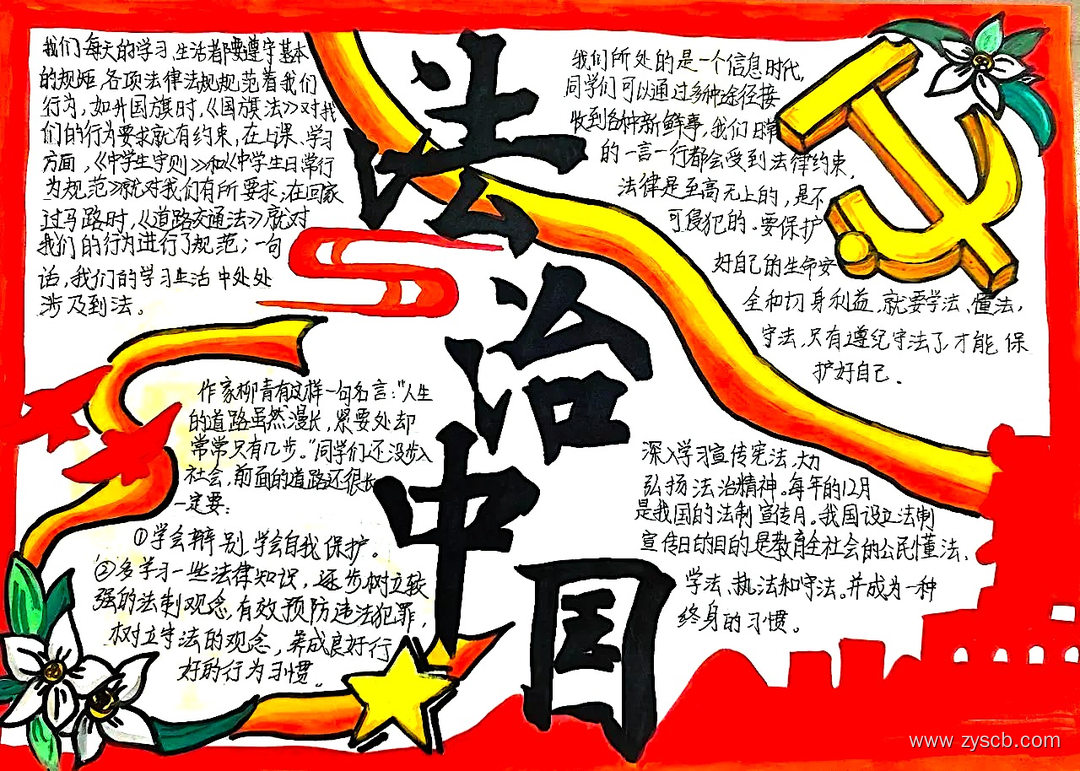 法治中国
我们每天的学习生活都要遵守基本
的规矩,各项法律法规规范着我们
行为,如升国旗时,《国旗法》对我
们的行为要求就有约束,在上课、学习
方面,《中学生守则》和《中学生日常行
为规范》就对我们有所要求;在回家
过马路时,《道路交通法》就对
我们的行为进行了规范;一句
话,我们的学习生活中处处
涉及到法。
我们所处的是一个信息时代,
同学们可以通过多种途径接
收到各种新鲜事,我们日常
的一言一行都会受到法律约束,
法律是至高无上的,是不
可侵犯的。要保护
好自己的生命安
全和切身利益,就要学法、懂法,
守法,只有遵纪守法了才能保
护好自己.
作家柳青有这样一句名言:"人生
的道路虽然漫长,紧要处却
常常只有几步。"同学们还没步入
社会,前面的道路还很长
一定要:
①学会辨别,学会自我保护。
②多学习一些法律知识,逐步树立较
强的法制观念,有效预防违法犯罪,
树立守法的观念,养成良好行
好的行为习惯。
深入学习宣传宪法,大力
弘扬法治精神。每年的12月
是我国的法制宣传月。我国设立法制
宣传日的目的是教育全社会的公民懂法、
学法、执法和守法。并成为一种
终身的习惯。
www.zyscb.com